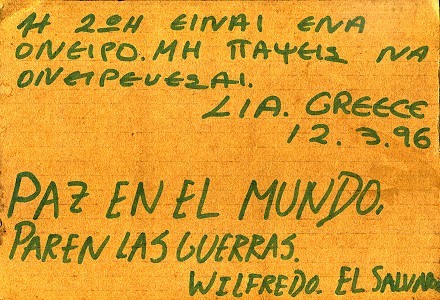 Η ΖΩΗ ΕΙΝΑΙ ΕΝΑ
ΟΝΕΙΡΟ. ΜΗ ΠΑΨΕΙΣ ΝΑ
ΟΝΕΙΡΕΥΕΣΑΙ.
LIA. GREECE
12.3.96
PAZ EN EL MUNDO.
PAREN LAS GUERRAS.
WILFREDO. EL SALVADOR